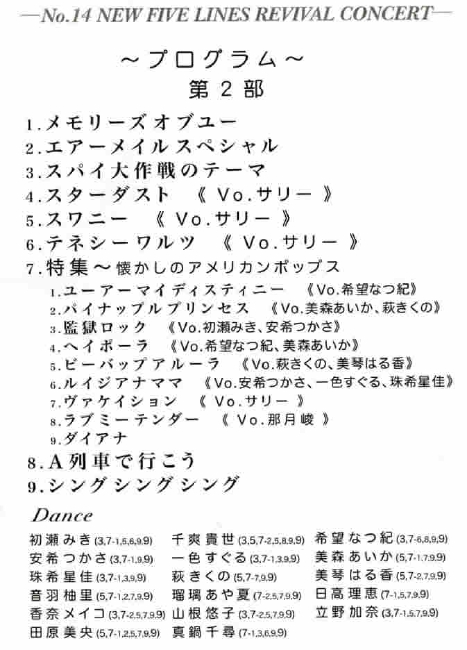 —No.14 NEW FIVE LINES REVIVAL CONCERT—
～プログラム～
第２部
1.メモリーズオブユー
2.エアーメイルスペシャル
3.スパイ大作戦のテーマ
4.スターダスト 《 Vo.サリー 》
5.スワニー 《 Vo.サリー 》
6.テネシーワルツ 《 Vo.サリー 》
7.特集～懐かしのアメリカンポップス
1.ユーアーマイディスティニー 《Vo.希望なつ紀》
2.パイナップルプリンセス 《Vo.美森あいか、萩きくの》
3.監獄ロック 《Vo.初瀬みき、安希つかさ》
4.ヘイポーラ 《Vo.希望なつ紀、美森あいか》
5.ビーバップアルーラ 《Vo.萩きくの、美琴はる香》
6.ルイジアナママ 《Vo.安希つかさ、一色すぐる、珠希星佳》
7.ヴァケイション 《 Vo.サリー 》
8.ラブミーテンダー 《 Vo.那月峻 》
9.ダイアナ
8.A列車で行こう
9.シングシングシング
Dance
初瀬みき(3,7-1,5,6,9,9) 千爽貴世(3,5,7-2,5,8,9,9) 希望なつ紀(3,7-6,8,9,9)
安希つかさ(3,7-1,9,9) 一色すぐる(3,7-1,3,9,9) 美森あいか(5,7-1,7,9,9)
珠希星佳(3,7-1,3,9,9) 萩きくの(5,7-7,9,9) 美琴はる香(5,7-2,7,9,9)
音羽柚里(5,7-1,2,7,9,9) 瑠璃あや夏(7-2,5,7,9,9) 日高理恵(7-1,5,7,9,9)
香奈メイコ(3,7-2,5,7,9,9) 山根悠子(3,7-2,5,7,9,9) 立野加奈(3,7-1,5,7,9,9)
田原美央(5,7-1,2,5,7,9,9) 真鍋千尋(7-1,3,6,9,9)